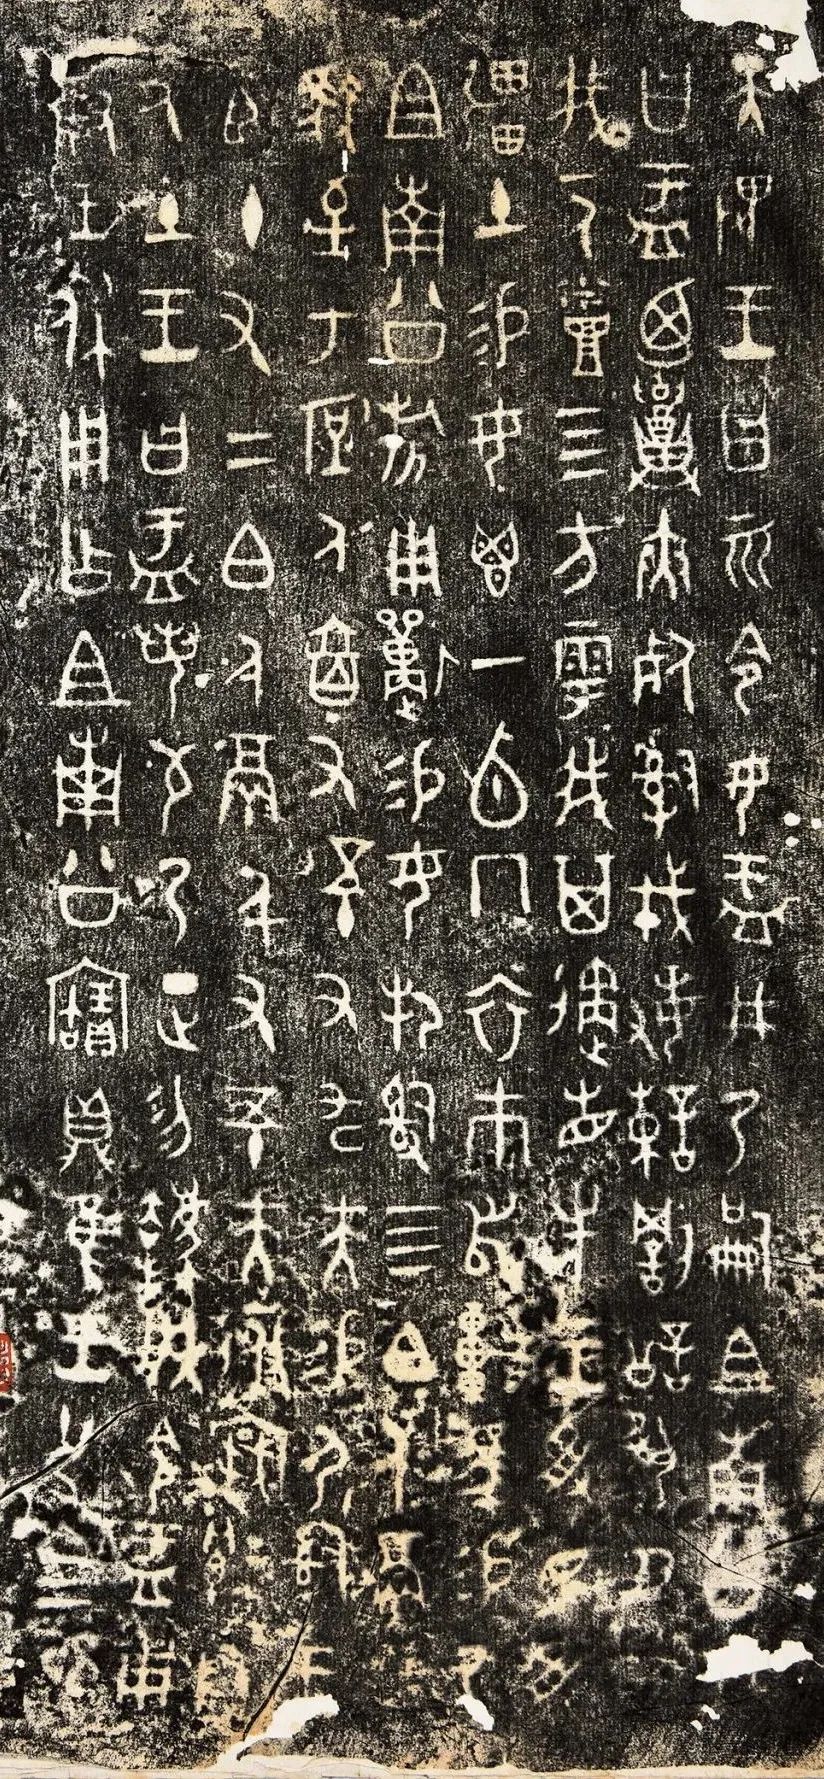 天畏王曰𠀠令女盂井乃嗣且南公
曰盂迺召夾死𤔲戎敏諫罰訟夙夕
我一人烝四方雩我其遹省先王受民受
疆土易女鬯一卣冂衣巿舄車馬易乃
且南公旂用狩易女邦𤔲四白人鬲自
馭至于庶人六百又五十又九夫易尸𤔲王
臣十又三白人鬲千又五十夫𠫏𥨐遷自
厥土王曰盂若芍乃正勿灋朕令盂用
對王休用乍且南公寶鼎隹王廿又三祀